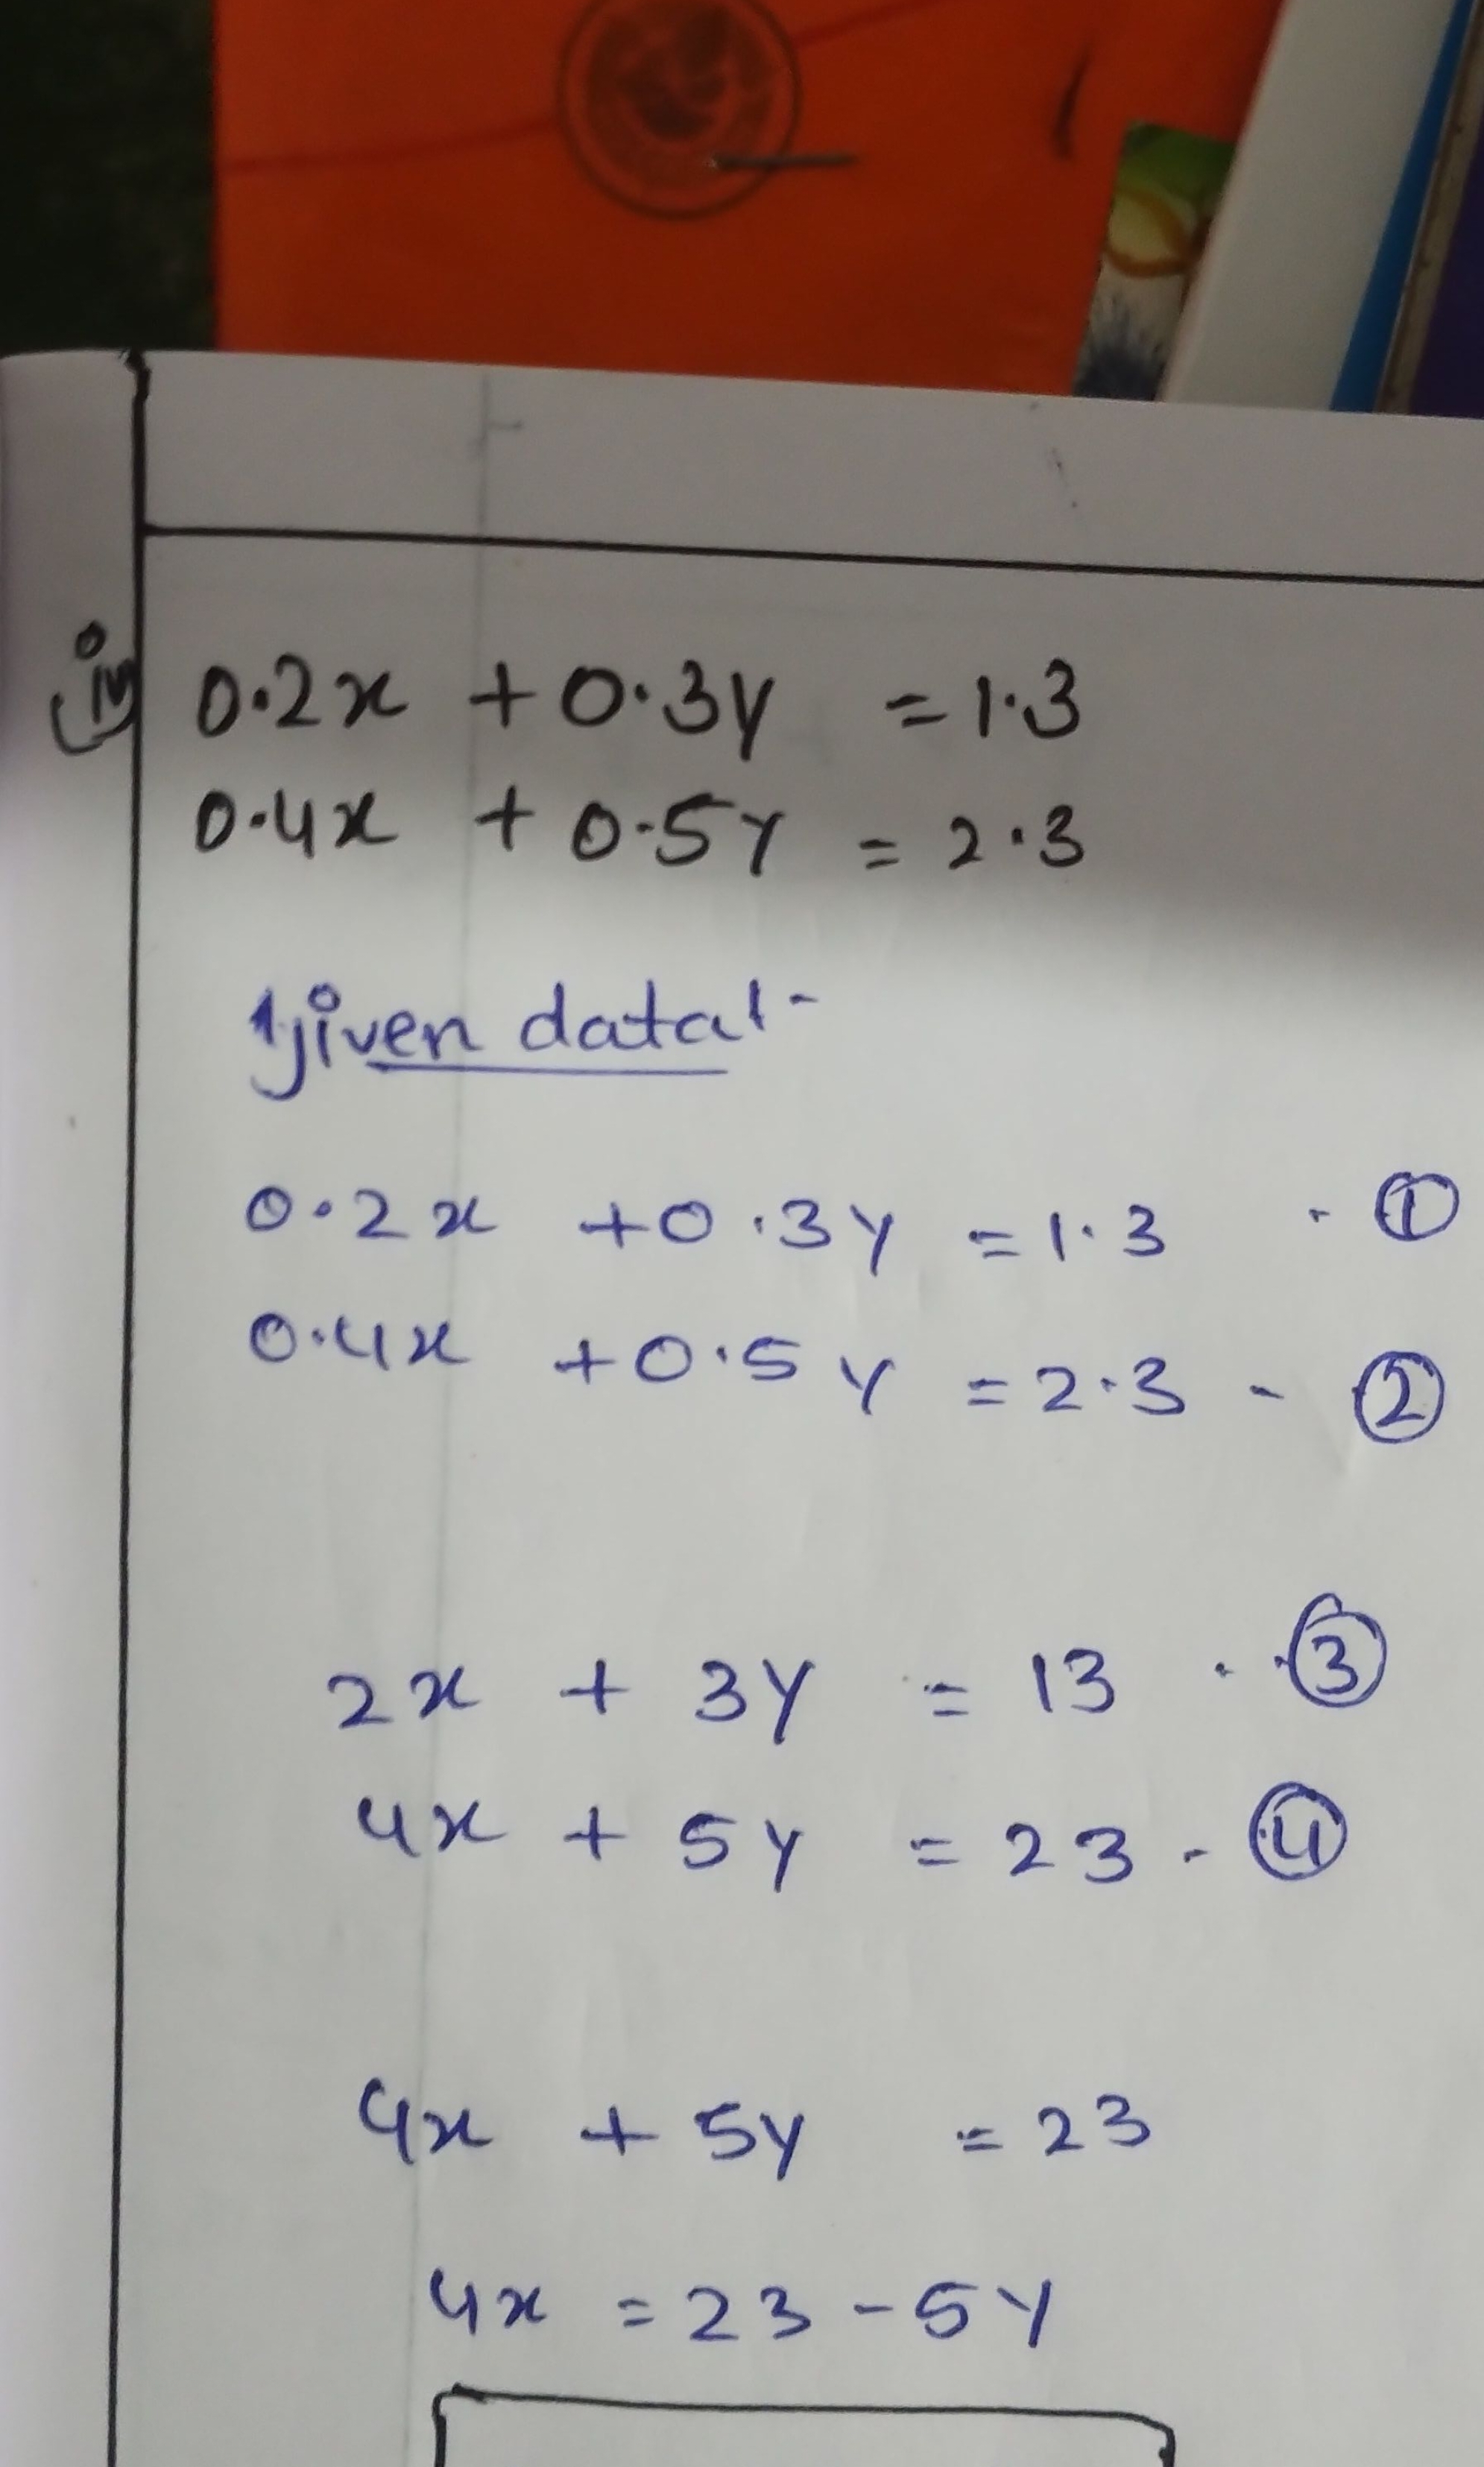 iv) 0.2x + 0.3y = 1.3
0.4x + 0.5y = 2.3
given data:-
0.2x + 0.3y = 1.3 - ①
0.4x + 0.5y = 2.3 - ②
2x + 3y = 13 - ③
4x + 5y = 23 - ④
4x + 5y = 23
4x = 23 - 5y